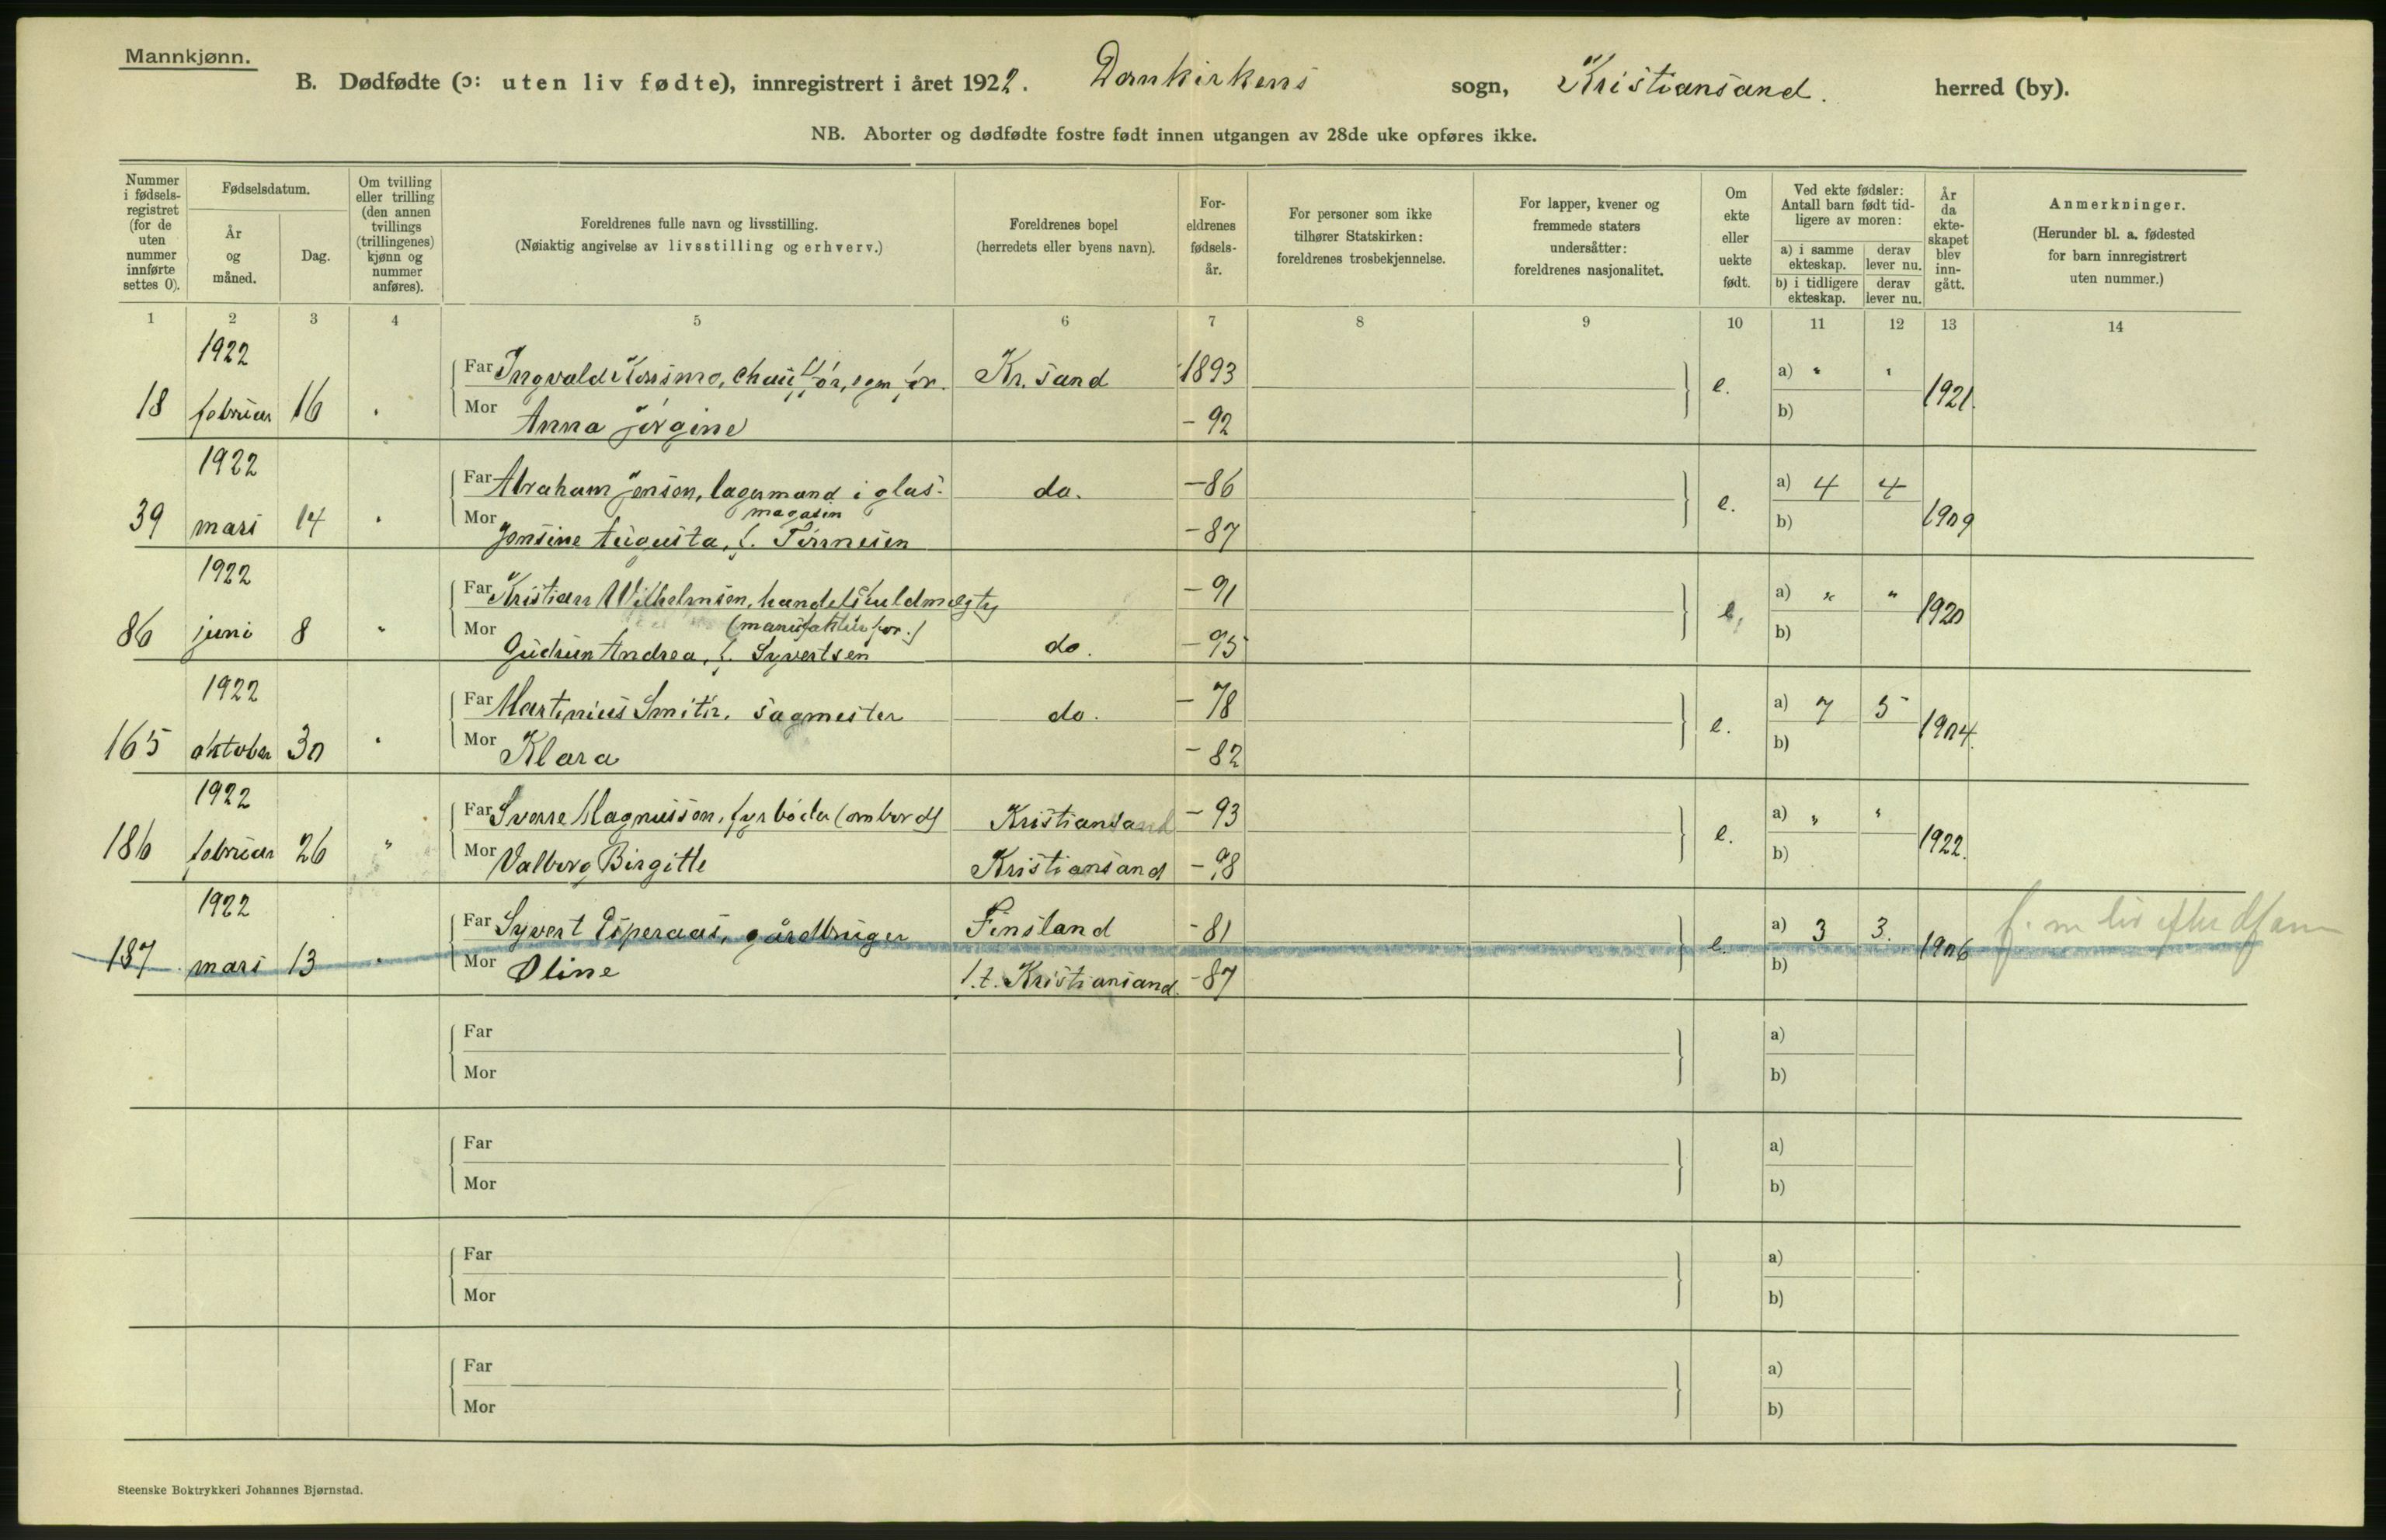 Mannkjønn.
B. Dødfødte (ɔ: uten liv fødte), innregistrert i året 1922. Domkirkens sogn, Kristiansand. herred (by).
NB. Aborter og dødfødte fostre født innen utgangen av 28de uke opføres ikke.
Nummer i fødsels-registret (for de uten nummer innførte settes 0).
Fødselsdatum.
År og måned.
Dag.
Om tvilling eller trilling (den annen tvillings (trillingenes) kjønn og nummer anføres).
Foreldrenes fulle navn og livsstilling.
(Nøiaktig angivelse av livsstilling og erhverv.)
Foreldrenes bopel
(herredets eller byens navn).
For-eldrenes fødsels-år.
For personer som ikke tilhører Statskirken: foreldrenes trosbekjennelse.
For lapper, kvener og fremmede staters undersåtter: foreldrenes nasjonalitet.
Om ekte eller uekte født.
Ved ekte fødsler: Antall barn født tid-ligere av moren:
a) i samme ekteskap.
derav lever nu.
b) i tidligere ekteskap.
derav lever nu.
År da ekte-skapet blev inn-gått.
Anmerkninger.
(Herunder bl. a. fødested for barn innregistrert uten nummer.)
1 2 3 4 5 6 7 8 9 10 11 12 13 14
1922
Far Ingvald, chauffør, egen Kr. sand 1893 a) " "
18 februar 16 " e. 1921.
Mor Anna Jørgine - 92 b)
1922
Far Abraham Jensen, lagermand i glas- do. - 86 a) 4 4
magasin
39 mars 14 " e. 1909
Mor Jensine Augusta, f. Tønnesen - 87 b)
1922
Far Kristian Wilhelmsen, handelsfuldmægtig - 91 a) " "
(manufaktur for.)
86 juni 8 " e. 1920
Mor Gudrun Andrea, f. Syvertsen do. - 95 b)
1922
Far Martinius Smith, sagmester do. - 78 a) 7 5
165 oktober 30 " e. 1904.
Mor Klara - 82 b)
1922
Far Sverre Magnussen, fyrbøder (ombord) Kristiansand - 93 a) " "
186 februar 26 " e. 1922.
Mor Valborg Birgitte Kristiansand - 98 b)
1922
Far Syvert Esperaas, gårdbruger Finsland - 81 a) 3 3. f. m liv efter
187 mars 13 " e. 1906
Mor Oline f.t. Kristiansand. - 87 b)
Far a)
Mor b)
Far a)
Mor b)
Far a)
Mor b)
Far a)
Mor b)
Steenske Boktrykkeri Johannes Bjørnstad.